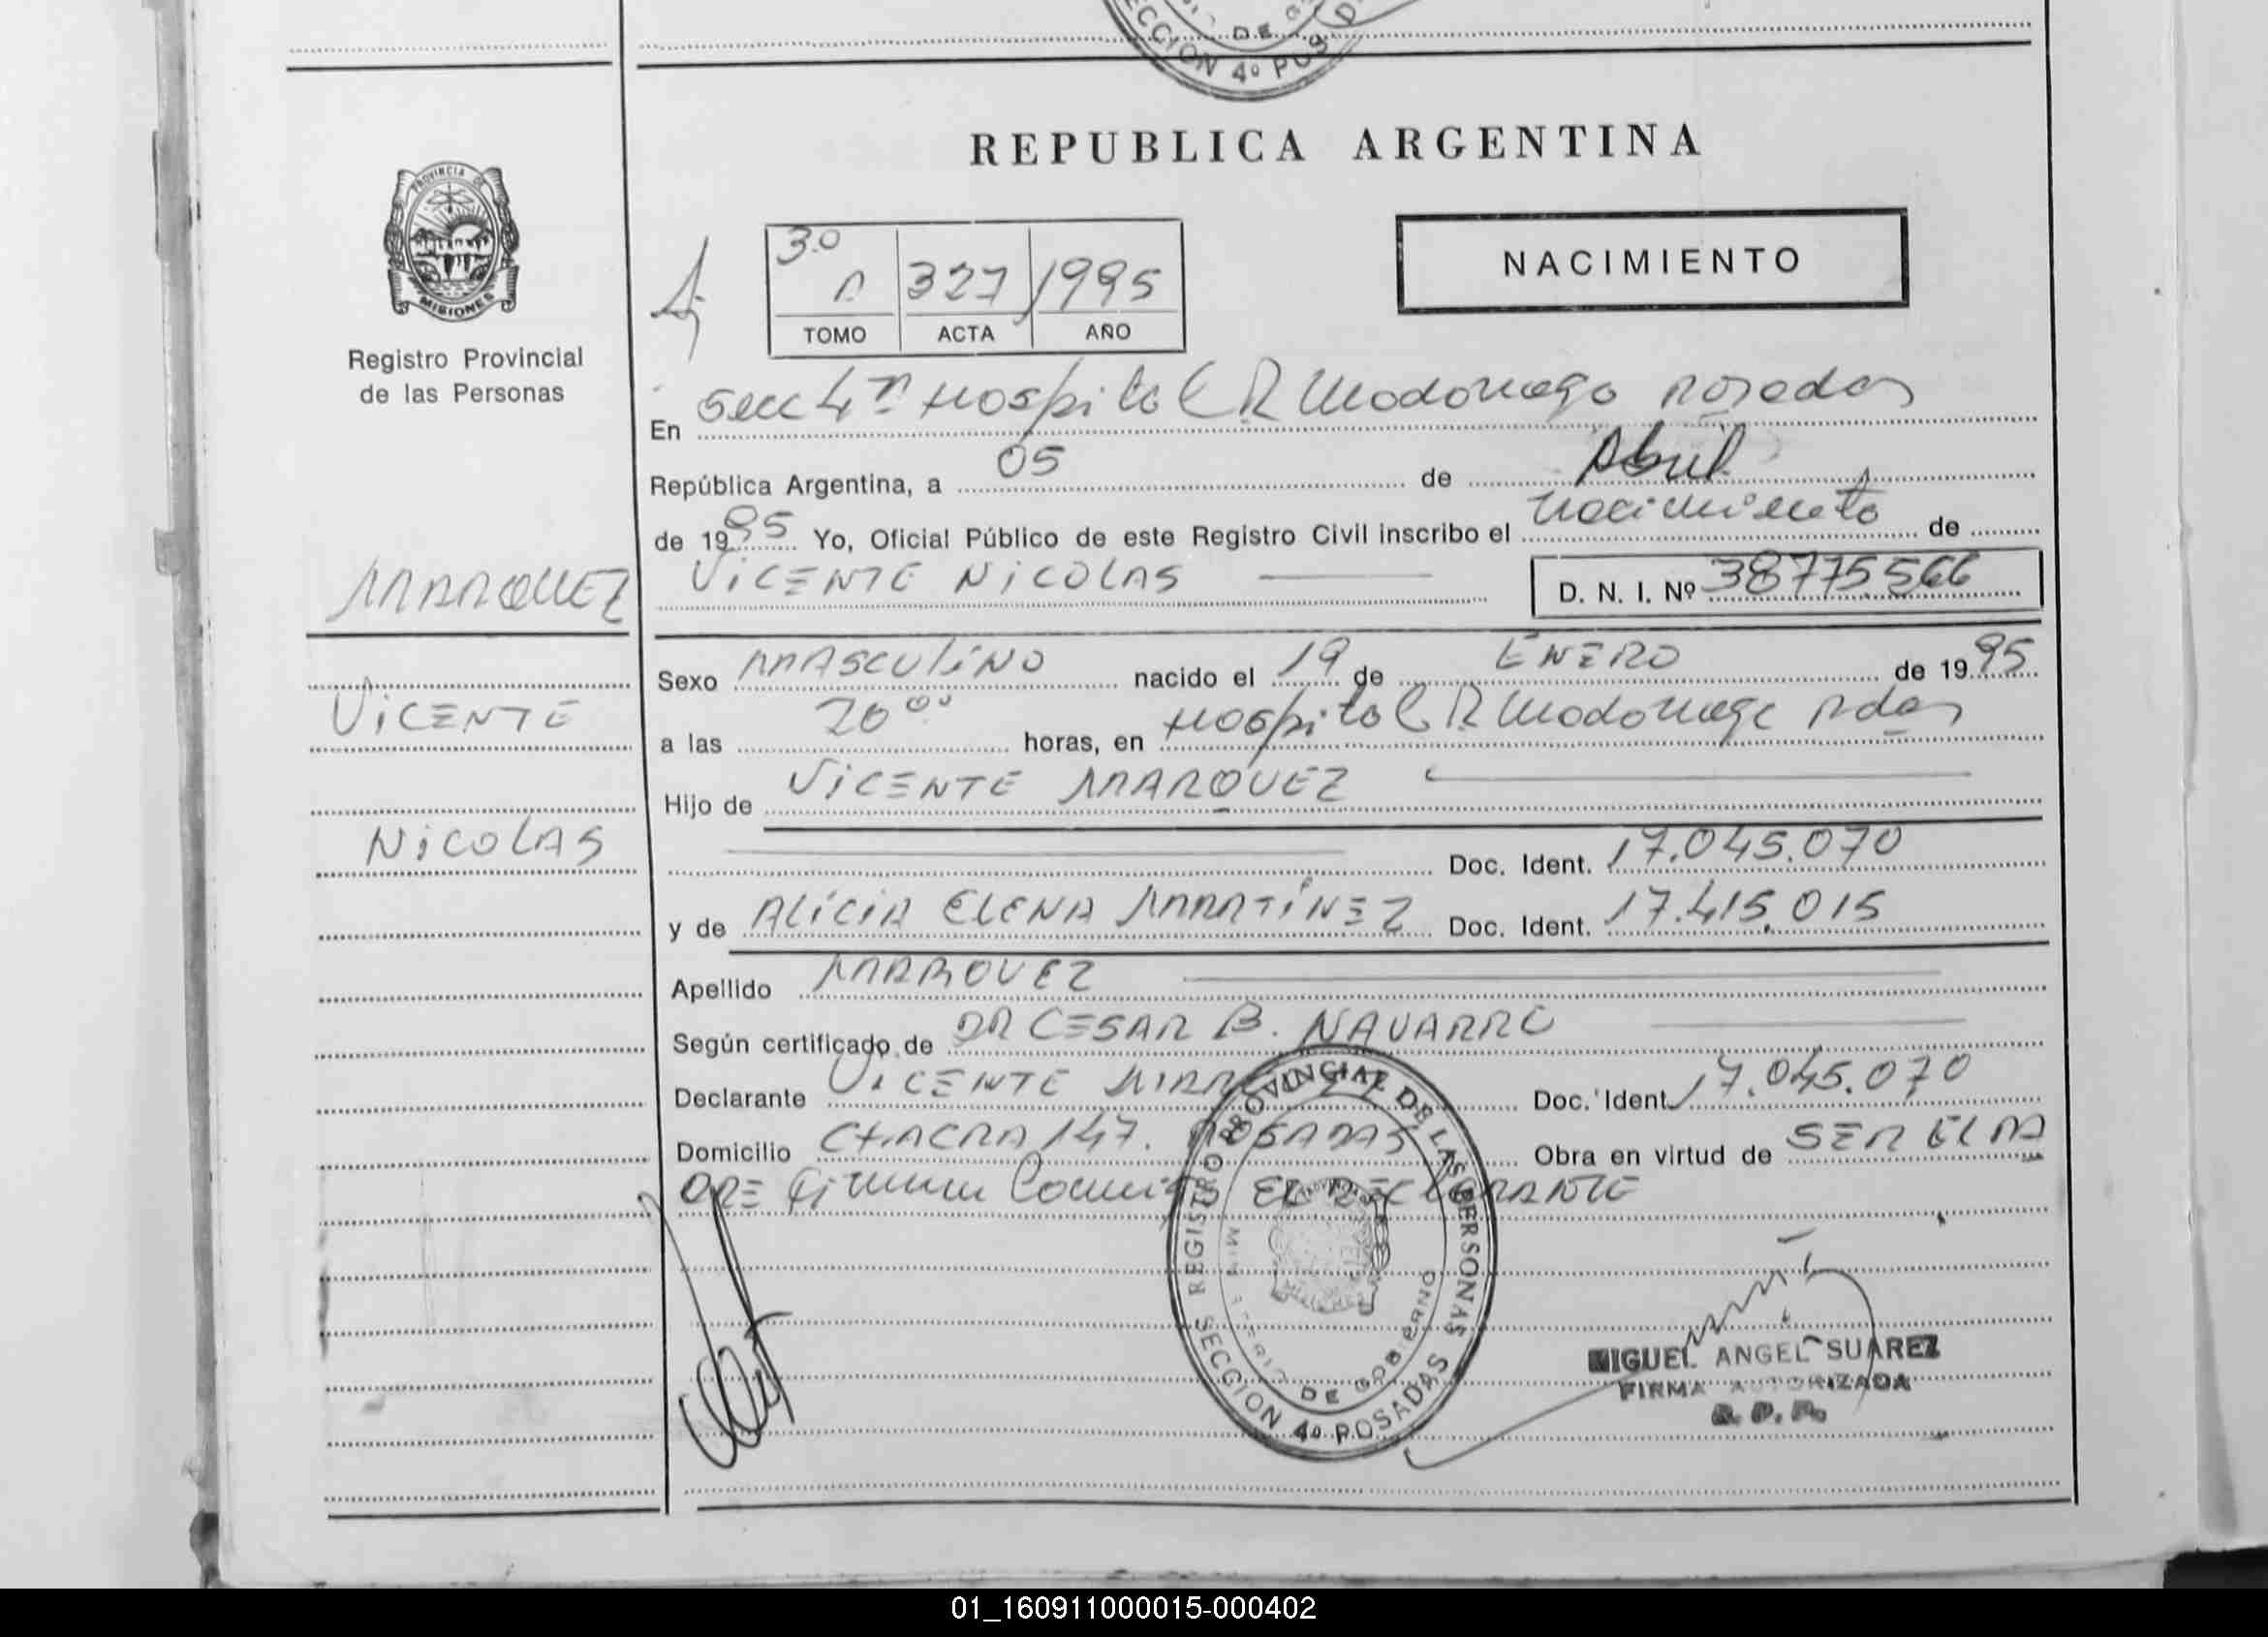 DE
SECCION 4º POSADAS
REPUBLICA ARGENTINA
PROVINCIA DE
MISIONES
Registro Provincial
de las Personas
3º
327 1995
TOMO ACTA AÑO
NACIMIENTO
En Secc 4ª Hospital R Madariaga Posadas
República Argentina, a 05 de Abril
de 1995 Yo, Oficial Público de este Registro Civil inscribo el nacimiento de
MARQUEZ
VICENTE NICOLAS D. N. I. Nº 38775566
Sexo MASCULINO nacido el 19 de ENERO de 1995
VICENTE
a las 20 00 horas, en Hospital R Madariaga Pdas
Hijo de VICENTE MARQUEZ
NICOLAS
Doc. Ident. 17.045.070
y de ALICIA ELENA MARTÍNEZ Doc. Ident. 17.415.015
Apellido MARQUEZ
Según certificado de DR CESAR B. NAVARRO
Declarante VICENTE MARQUEZ Doc. Ident. 17.045.070
Domicilio CHACRA 147. POSADAS Obra en virtud de SER EL PA
DRE Firman Conmigo EL DECLARANTE
REGISTRO PROVINCIAL DE LAS PERSONAS
MINISTERIO DE GOBIERNO
SECCION 4º POSADAS
MIGUEL ANGEL SUAREZ
FIRMA AUTORIZADA
R. P. P.
01_160911000015-000402